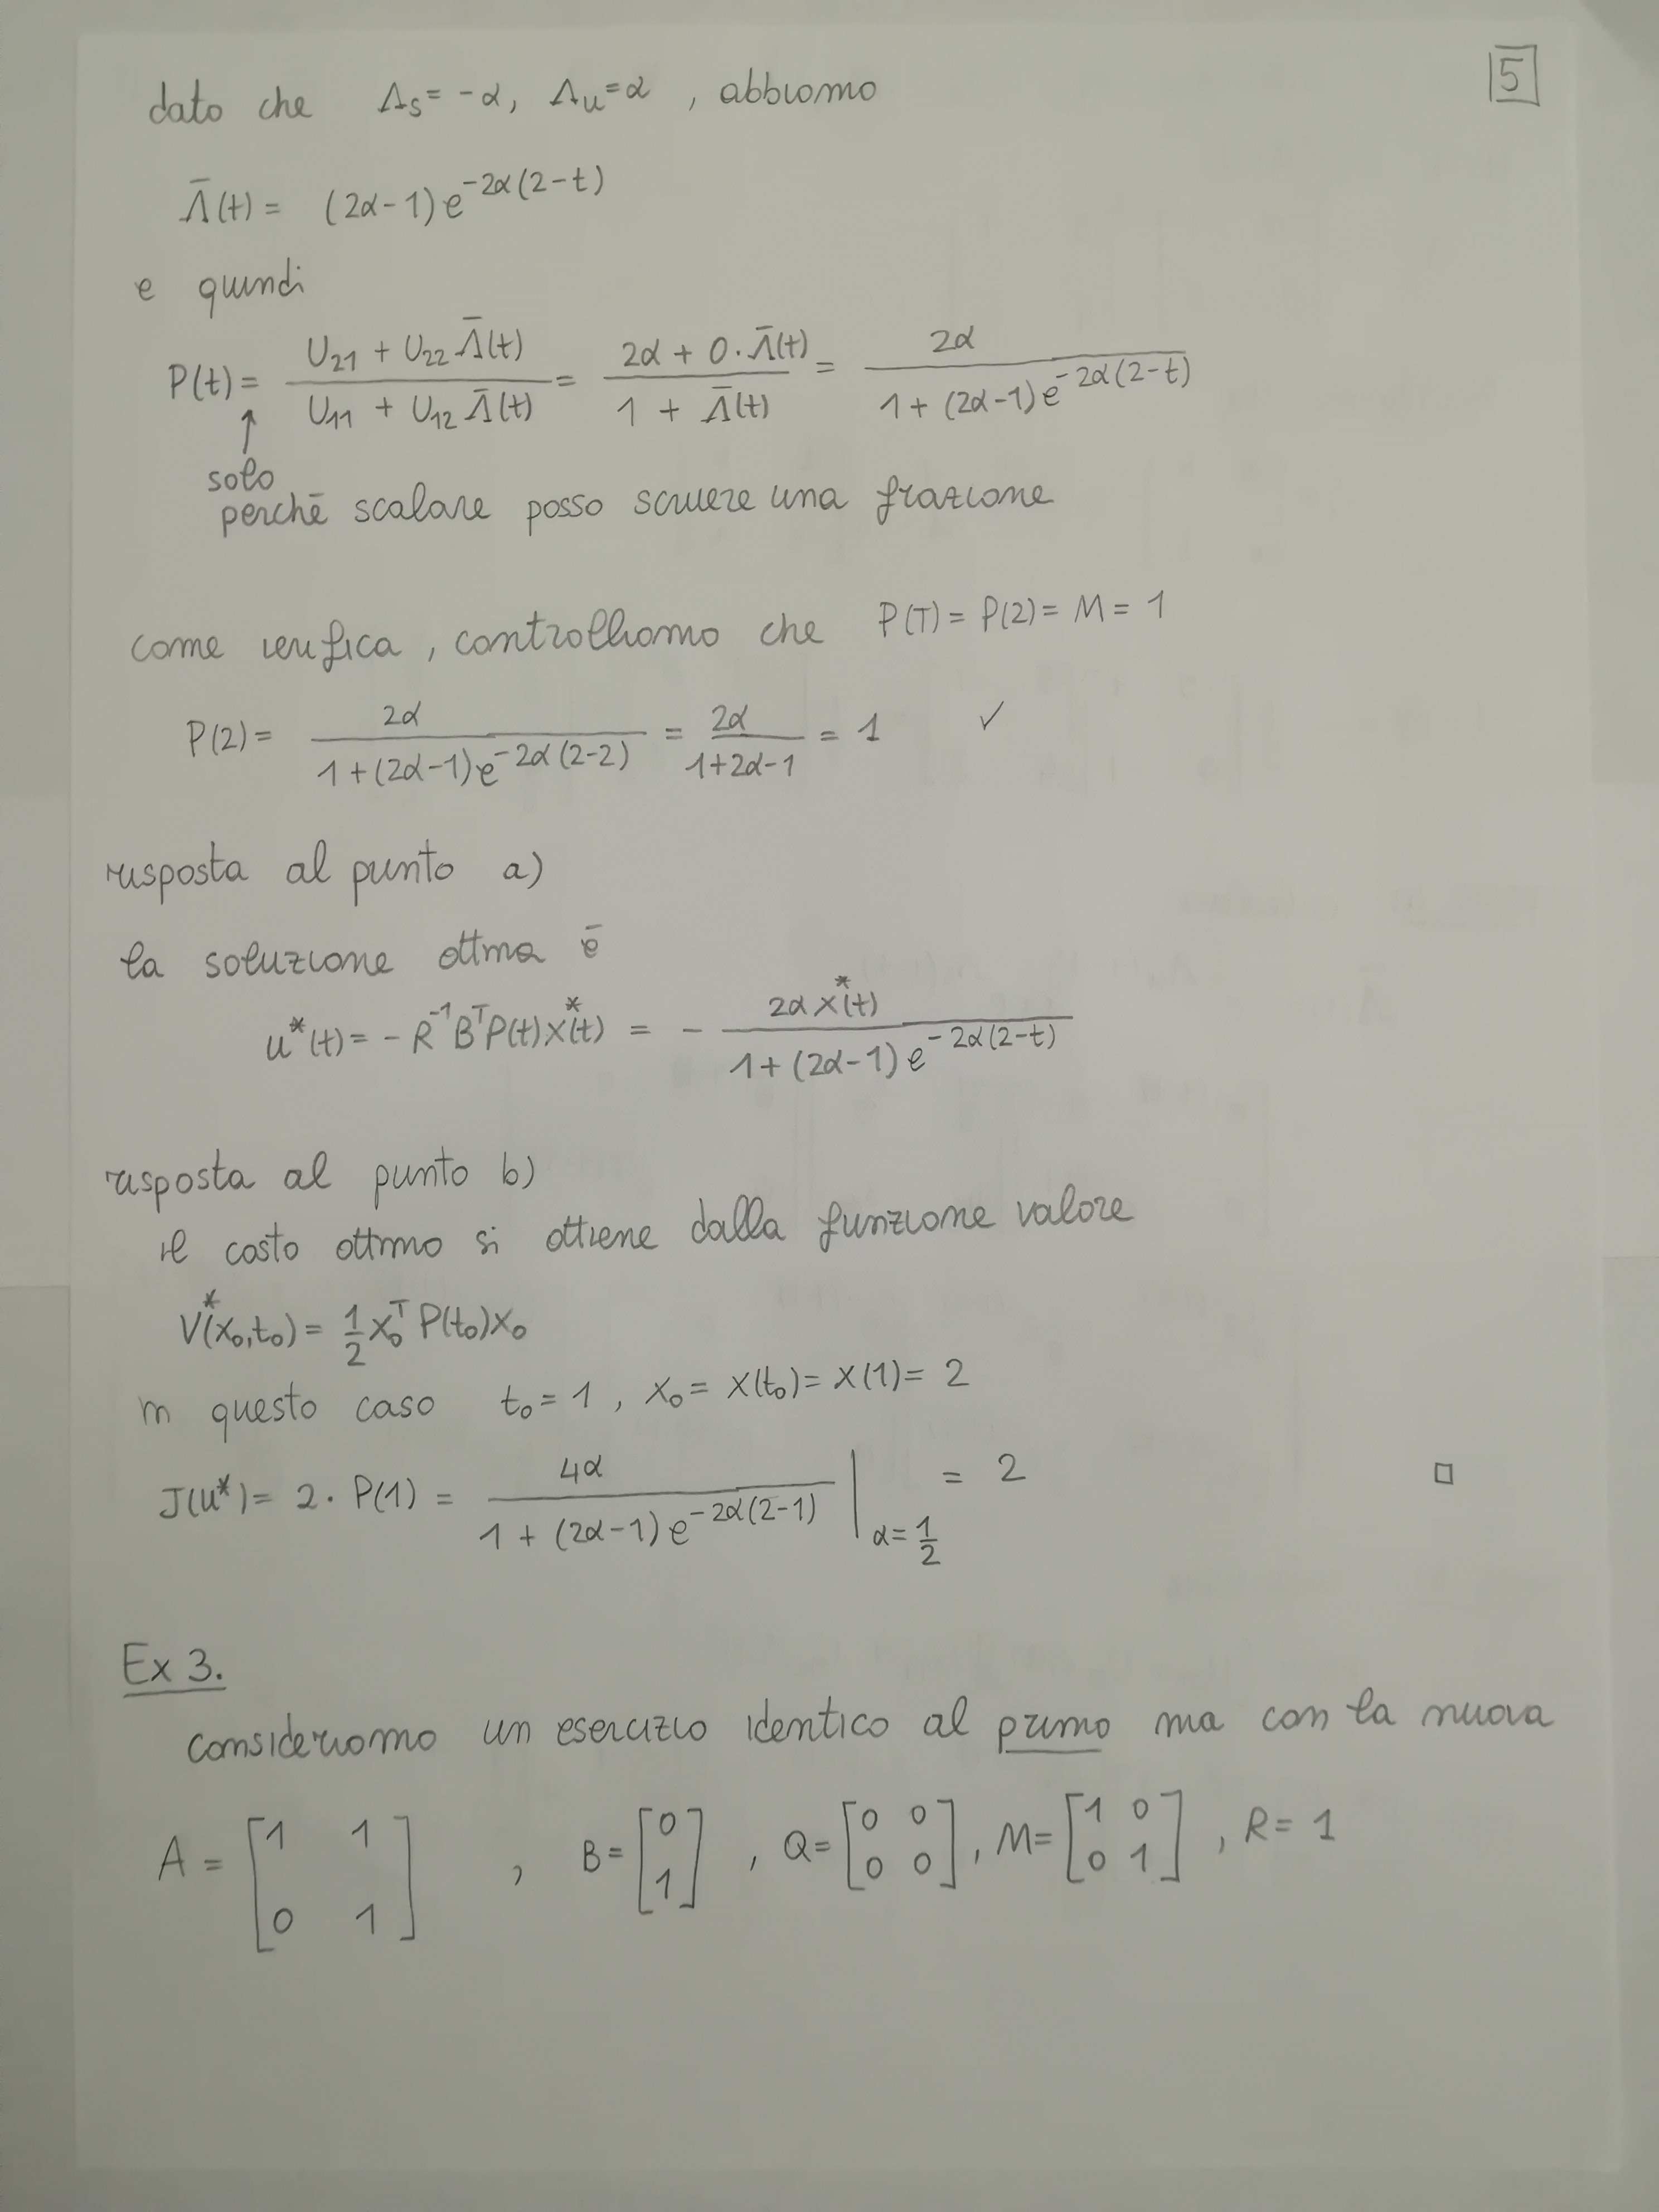 5
dato che Λs = -α, Λu = α , abbiamo
Λ̄(t) = (2α-1)e^{-2α(2-t)}
e quindi
P(t) = (U21 + U22 Λ̄(t)) / (U11 + U12 Λ̄(t)) = (2α + 0·Λ̄(t)) / (1 + Λ̄(t)) = 2α / (1 + (2α-1)e^{-2α(2-t)})
↑
solo
perchē scalare posso scrivere una frazione
come verifica, controlliamo che P(T) = P(2) = M = 1
P(2) = 2α / (1+(2α-1)e^{-2α(2-2)}) = 2α / (1+2α-1) = 1 ✓
risposta al punto a)
la soluzione ottima ē
u*(t) = - R^{-1} B^T P(t) x*(t) = - 2α x*(t) / (1+(2α-1)e^{-2α(2-t)})
risposta al punto b)
il costo ottimo si ottiene dalla funzione valore
V*(x0,t0) = 1/2 x0^T P(t0) x0
in questo caso t0 = 1 , x0 = x(t0) = x(1) = 2
J(u*) = 2 · P(1) = 4α / (1 + (2α-1)e^{-2α(2-1)}) |_{α=1/2} = 2 □
Ex 3.
consideriamo un esercizio identico al primo ma con la nuova
A = [1 1; 0 1] , B = [0; 1] , Q = [0 0; 0 0] , M = [1 0; 0 1] , R = 1